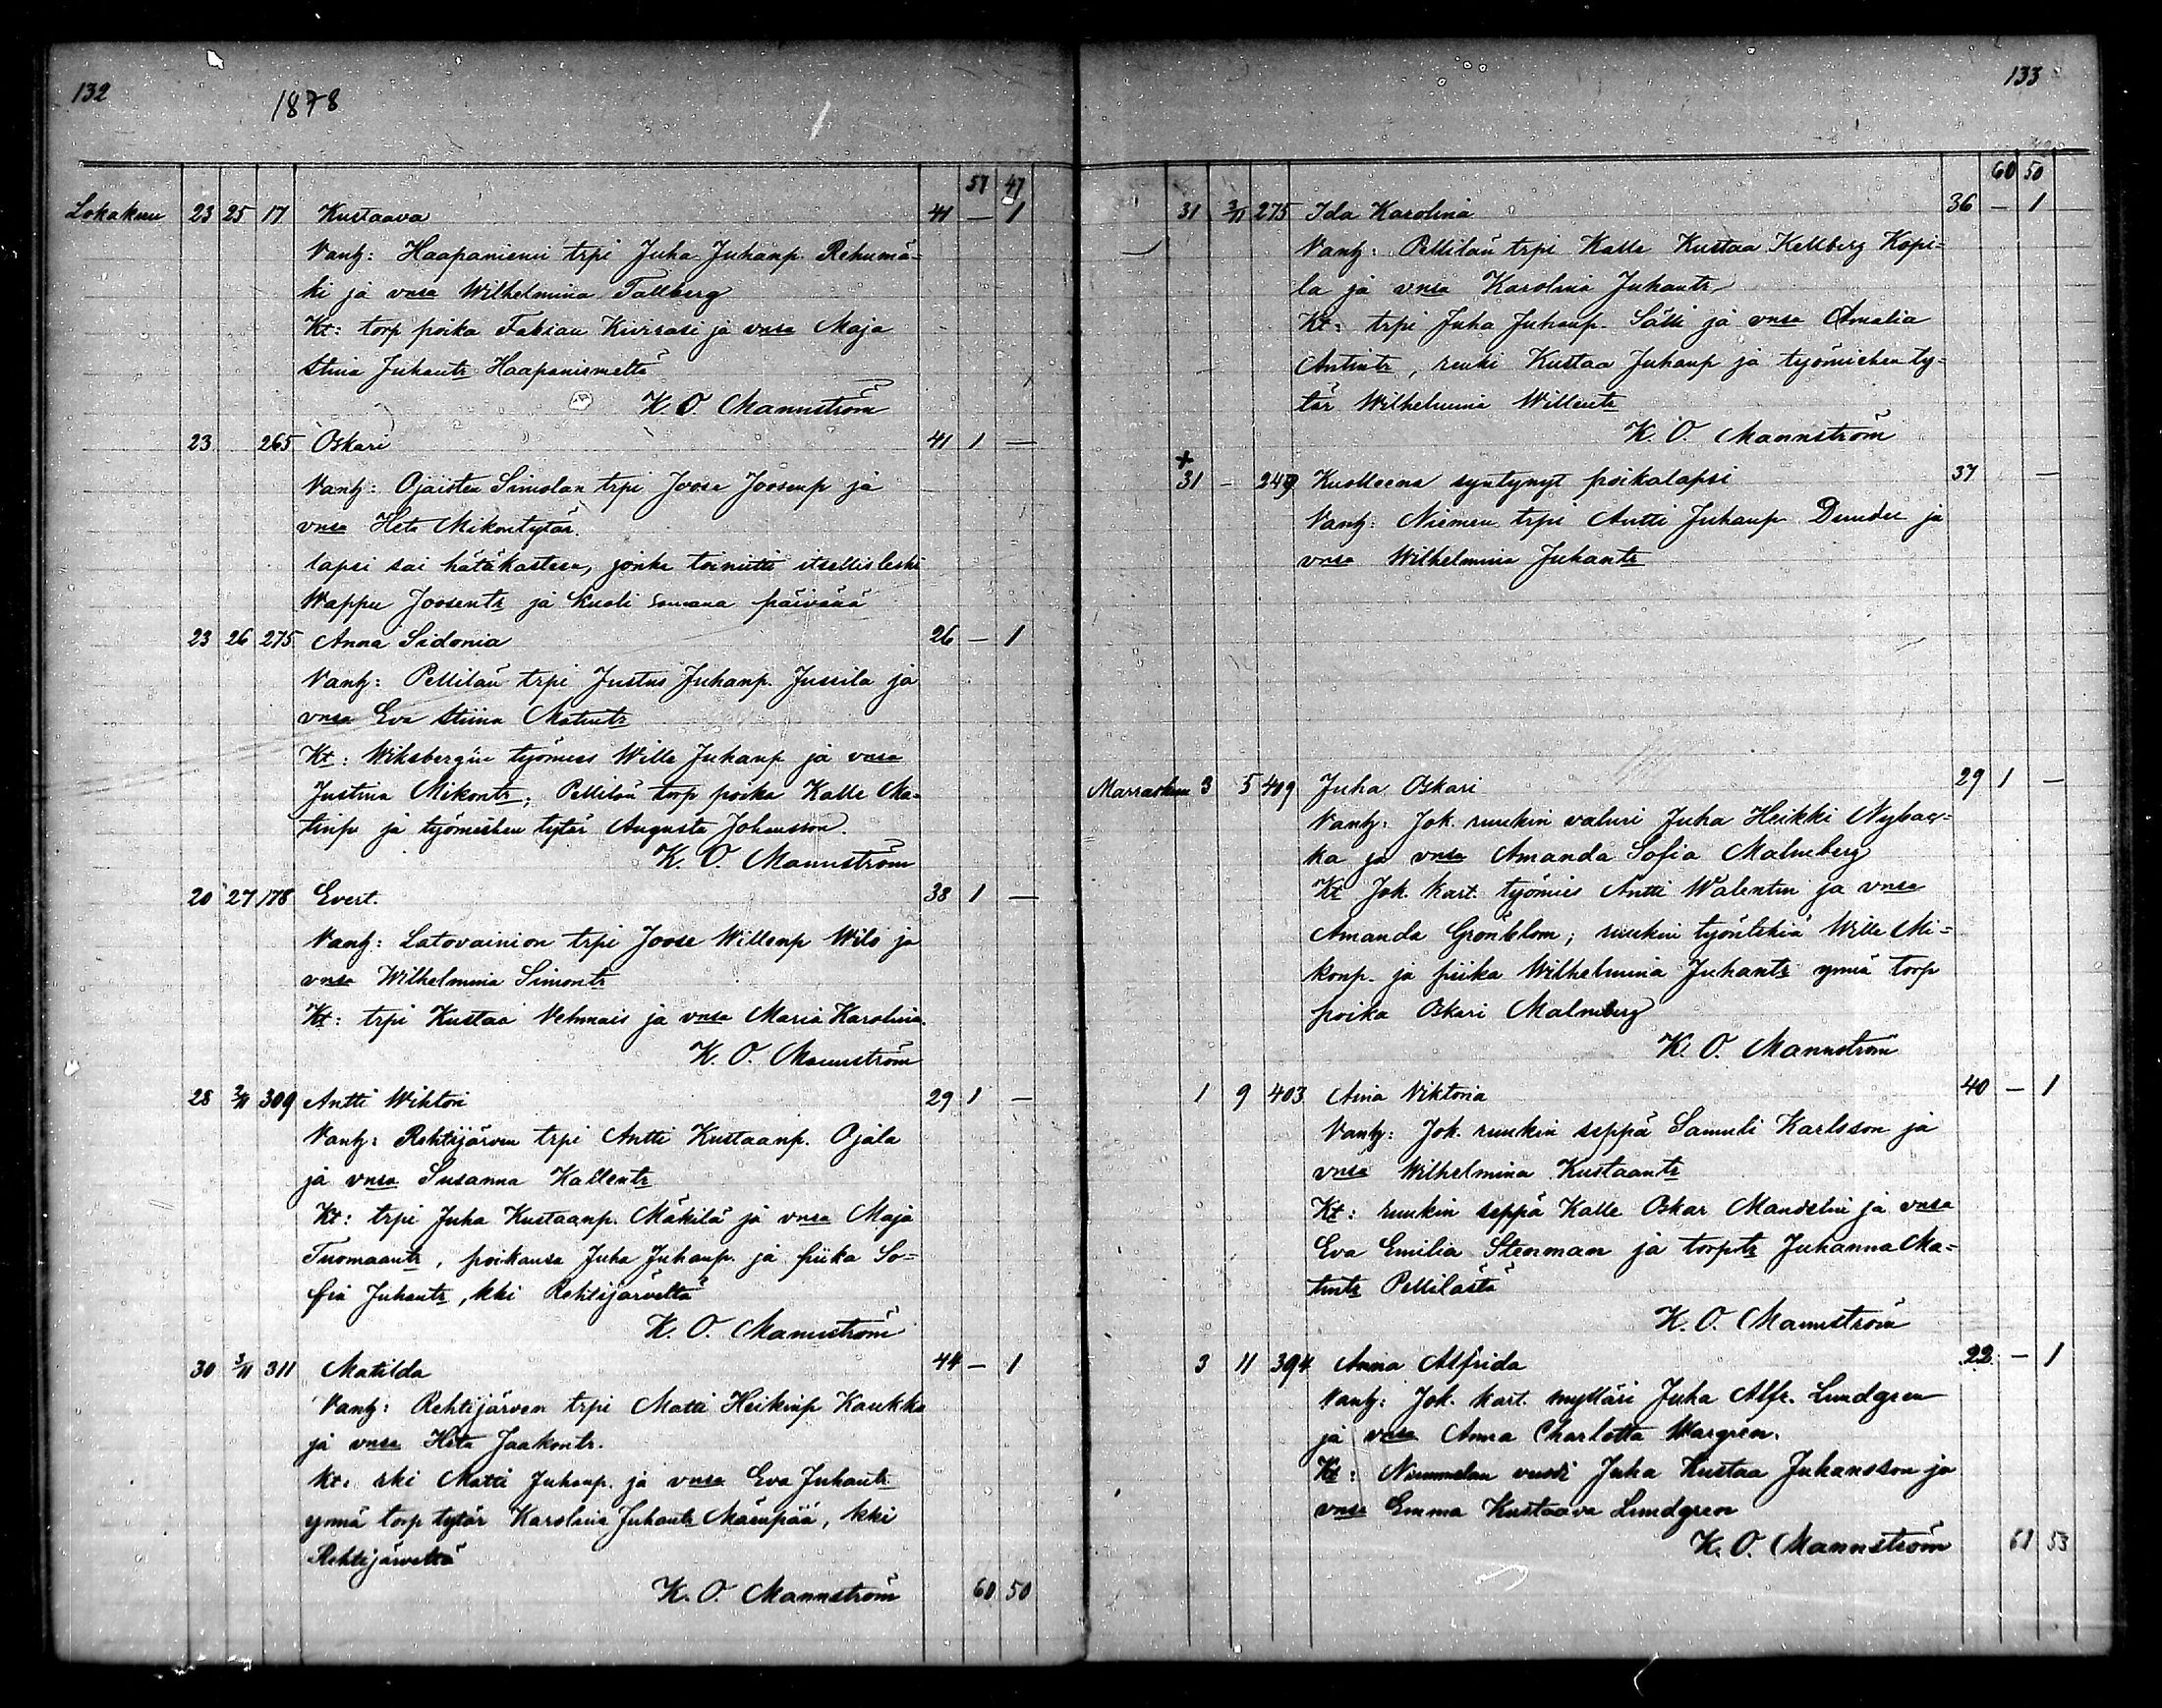 132
1878
57 47
Lokakuu 23 25 17 Kustaava 41 — 1
Vanh: Haapaniemi trpi Juha Juhanp. Rehumä-
ki ja vnsa Wilhelmina Tallberg
Kt: torp poika Fabian Kivisasi ja vnsa Maja
Stina Juhantr Haapaniemeltä
K. O. Mannström
23 265 Oskari 41 1 —
Vanh: Ojaisten Simolan trpi Joose Joosenp ja
vnsa Heta Mikontytär.
lapsi sai hätäkasteen, jonka toimitti itsellisleski
Wappu Joosentr ja kuoli samana päivänä
23 26 275 Anna Sidonia 26 — 1
Vanh: Pellilän trpi Justus Juhanp. Jussila ja
vnsa Eva Stiina Matintr
Kt: Wiksbergin työmies Wille Juhanp ja vnsa
Justina Mikontr; Pellilän torp poika Kalle Ma-
tinp ja työmiehen tytär Augusta Johansson.
K. O. Mannström
20 27 178 Evert. 38 1 —
Vanh: Latovainion trpi Joose Willenp Wilo ja
vnsa Wilhelmina Simontr
Kt: trpi Kustaa Vehmais ja vnsa Maria Karolina.
K. O. Mannström
28 2/11 309 Antti Wihtori 29 1 —
Vanh: Rehtijärven trpi Antti Kustaanp. Ojala
ja vnsa Susanna Kallentr
Kt: trpi Juha Kustaanp. Mäkilä ja vnsa Maja
Tuomaantr, poikansa Juha Juhanp. ja piika So-
fia Juhantr, kki Rehtijärveltä
K. O. Mannström
30 3/11 311 Matilda 44 — 1
Vanh: Rehtijärven trpi Matti Heikinp Kaukka
ja vnsa Heta Jaakontr.
Kt: rki Matti Juhanp. ja vnsa Eva Juhantr
ynnä torp tytär Karolina Juhantr Mäenpää, kki
Rehtijärveltä
K. O. Mannström 60 50
133
60 50
31 3/11 275 Ida Karolina 36 — 1
Vanh: Pellilän trpi Kalle Kustaa Kellberg Kopi=
la ja vnsa Karolina Juhantr
Kt: trpi Juha Juhanp. Sälli ja vnsa Amalia
Antintr, renki Kustaa Juhanp ja työmiehen ty=
tär Wilhelmina Willentr
K. O. Mannström
+
31 — 249 Kuolleena syntynyt poikalapsi 37 —
Vanh: Niemen trpi Antti Juhanp Dunder ja
vnsa Wilhelmina Juhantr
Marraskuu 3 5 409 Juha Oskari 29 1 —
Vanh: Jok. ruukin valuri Juha Heikki Nybac=
ka ja vnsa Amanda Sofia Malmberg
Kt Jok. kart. työmies Antti Walentin ja vnsa
Amanda Grönblom; ruukin työntekiä Wille Mi=
konp. ja piika Wilhelmina Juhantr ynnä torp
poika Oskari Malmberg
K. O. Mannström
1 9 403 Aina Viktoria 40 — 1
Vanh: Jok. ruukin seppä Samuli Karlsson ja
vnsa Wilhelmina Kustaantr
Kt: ruukin seppä Kalle Oskar Mandelin ja vnsa
Eva Emilia Stenman ja torptr Juhanna Ma=
tintr Pellilästä
K. O. Mannström
3 11 394 Anna Alfrida 22 — 1
Vanh: Jok. kart. mylläri Juha Alfr. Lundgren
ja vnsa Anna Charlotta Wargren.
Kt: Nummelan vuori Juha Kustaa Juhansson ja
vnsa Emma Kustaava Lundgren
K. O. Mannström 61 53